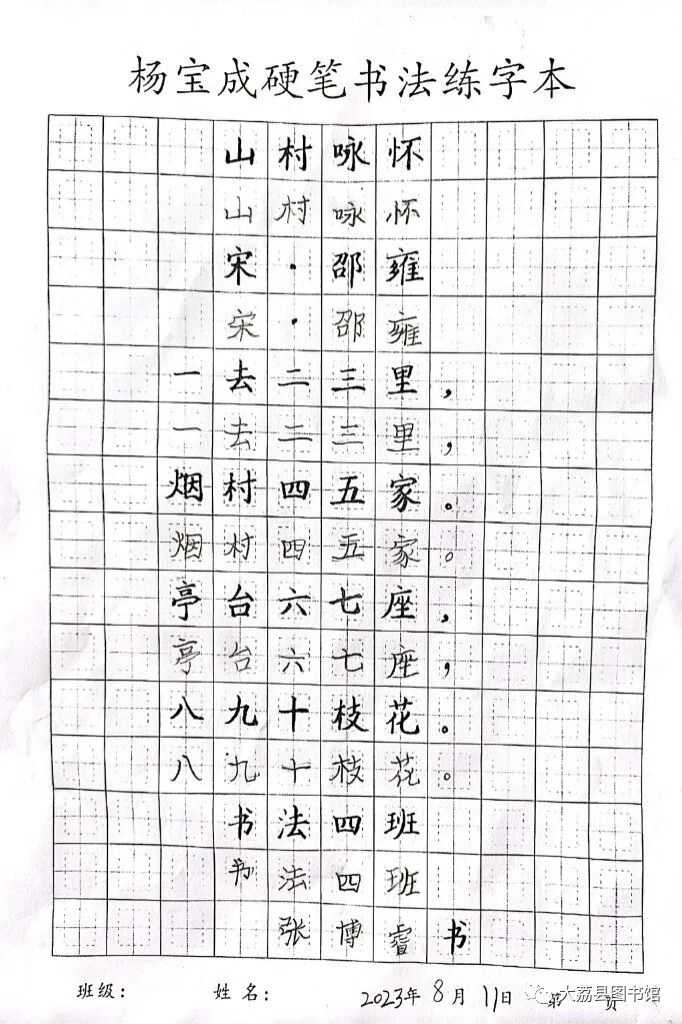 杨宝成硬笔书法练字本
山村咏怀
山村咏怀
宋·邵雍
宋·邵雍
一去二三里，
一去二三里，
烟村四五家。
烟村四五家。
亭台六七座，
亭台六七座，
八九十枝花。
八九十枝花。
书法四班
书法四班
张博睿书
班级： 姓名： 2023年8月11日 第 页
大荔县图书馆